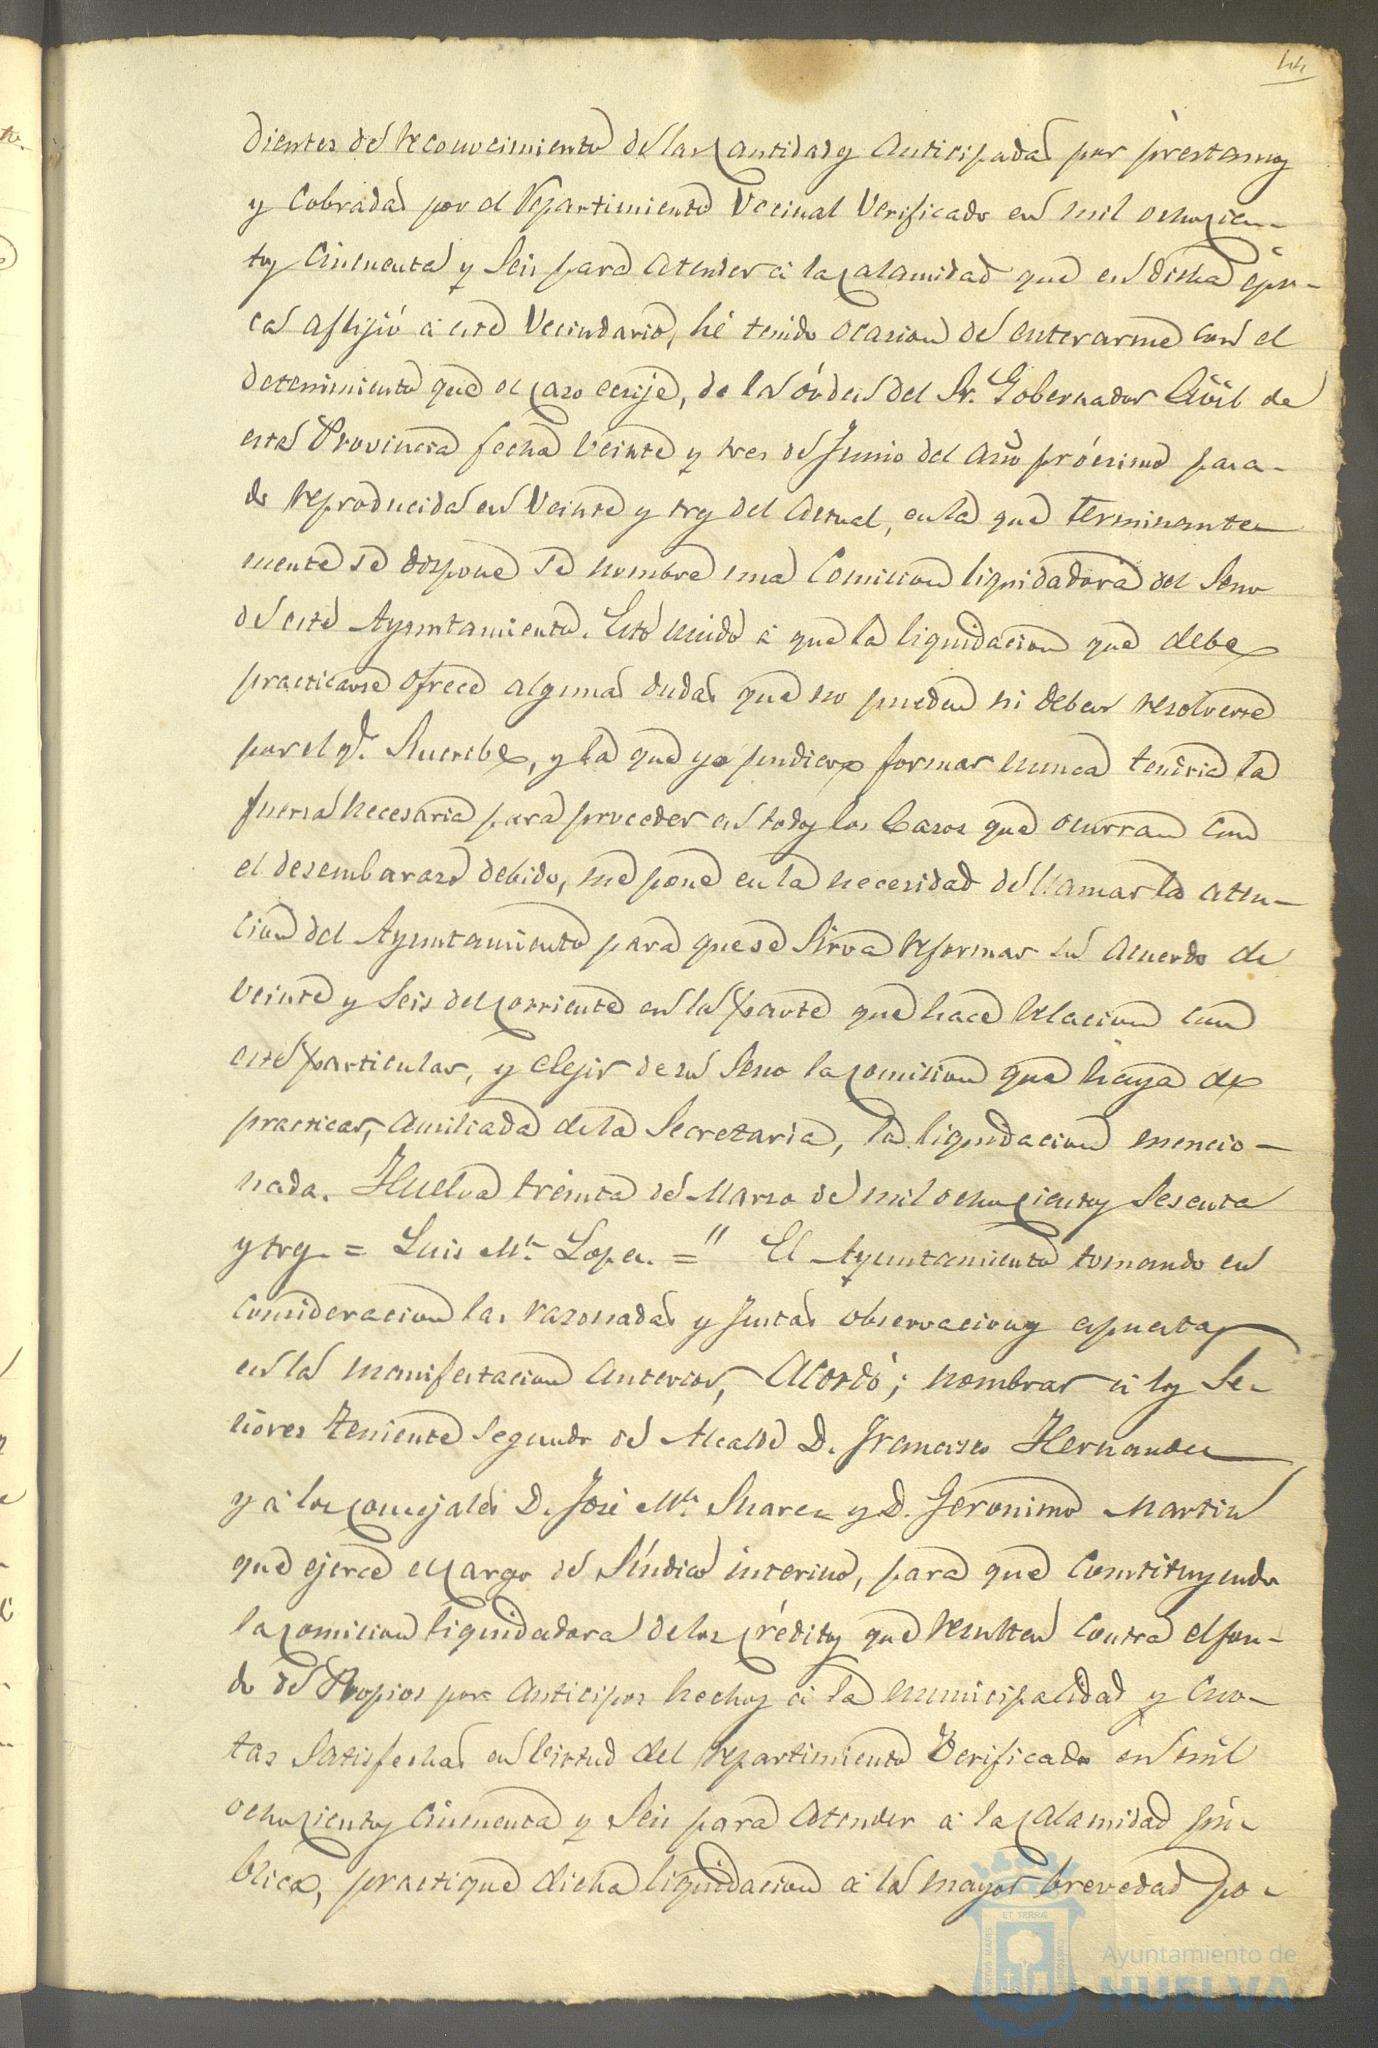 44
dientes del reconocimiento de las Cantidades Anticipadas por prestamos
y Cobradas por el Repartimiento Vecinal Verificado en mil ochocien-
tos Cincuenta y Seis para atender á la Calamidad que en dicha épo-
ca aflijió á este Vecindario, hé tenido ocasion de enterarme con el
detenimiento que el caso ecsije, de la órden del Sr. Gobernador Civil de
esta Provincia fecha Veinte y tres de Junio del año prócsimo pasa-
do reproducida en Veinte y tres del Actual, en la que terminante-
mente se dispone se nombre una Comision liquidadora del Seno
de este Ayuntamiento. Esto unido á que la liquidacion que debe
practicarse ofrece algunas dudas que no pueden ni deben resolverse
por el qe. Suscribe, y la que yo pudiera formar nunca tendria la
fuerza necesaria para proceder en todos los Casos que ocurran con
el desembarazo debido, me pone en la necesidad de llamar la aten-
cion del Ayuntamiento para que se Sirva reformar su Acuerdo de
Veinte y Seis del corriente en la parte que hace relacion con
este particular, y elejir de su Seno la comision que haya de
practicar, ausiliada de la Secretaria, la liquidacion mencio-
nada. Huelva treinta de Marzo de mil ochocientos Sesenta
y tres = Luis Ma. Lopez. =" El Ayuntamiento tomando en
Consideracion las razonadas y Justas observaciones espuestas
en la manifestacion anterior, Acordó; nombrar á los Se-
ñores Teniente Segundo de Alcalde D. Francisco Hernandez
y á los concejales D. José Ma. Suarez y D. Jeronimo Martin
que ejerce el Cargo de Síndico interino, para que Constituyendo
la comision liquidadora de los Créditos que resulten Contra el fon-
do de Propios por Anticipos hechos á la municipalidad y Cuo-
tas Satisfechas en Virtud del repartimiento Verificado en mil
ochocientos Cincuenta y Seis para Atender á la Calamidad pú-
blica, practique dicha liquidacion á la mayor brevedad po-
Ayuntamiento de
HUELVA